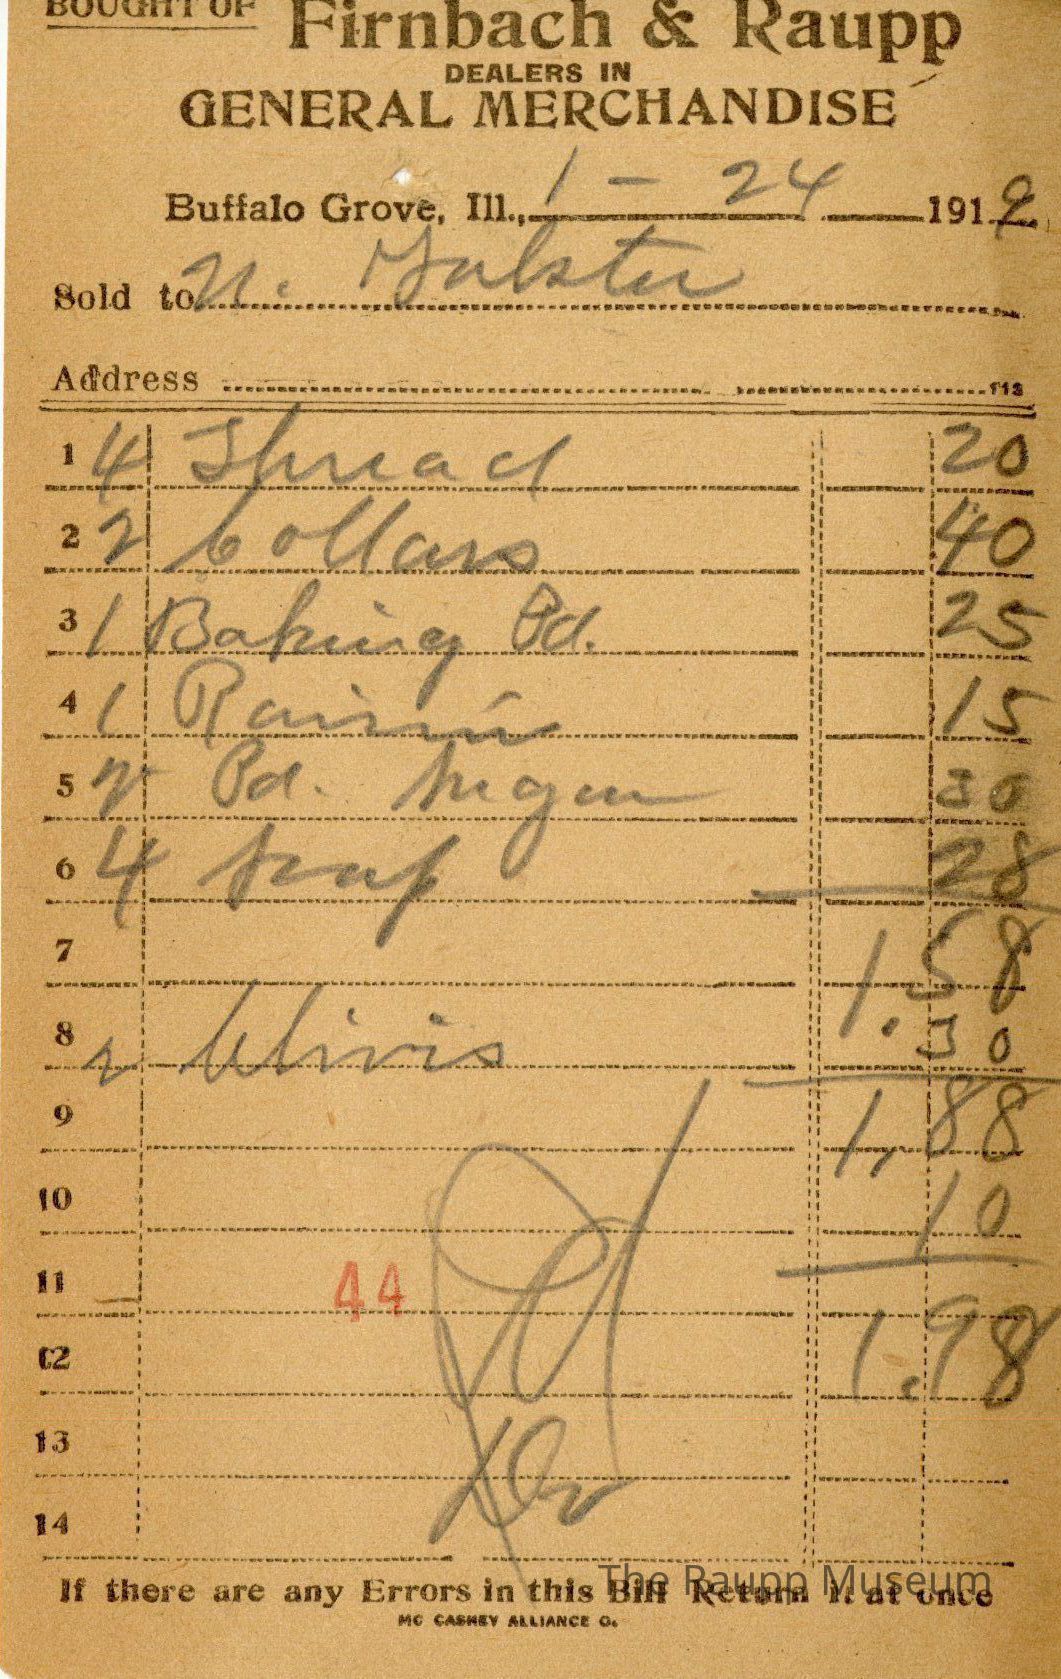 BOUGHT OF Firnbach & Raupp
DEALERS IN
GENERAL MERCHANDISE
Buffalo Grove, Ill., 1 - 24 1919
Sold to N.
Address 112
1 4 Thread 20
2 2 Collars 40
3 1 Baking Pd. 25
4 1 Raisin 15
5 2 Pd. 30
6 4 Soap 28
7 1.58
8 2 .30
9 1.88
10 10
11 44
12 1.98
13
14
If there are any Errors in this Bill Return it at once
MC CASKEY ALLIANCE O.
The Raupp Museum